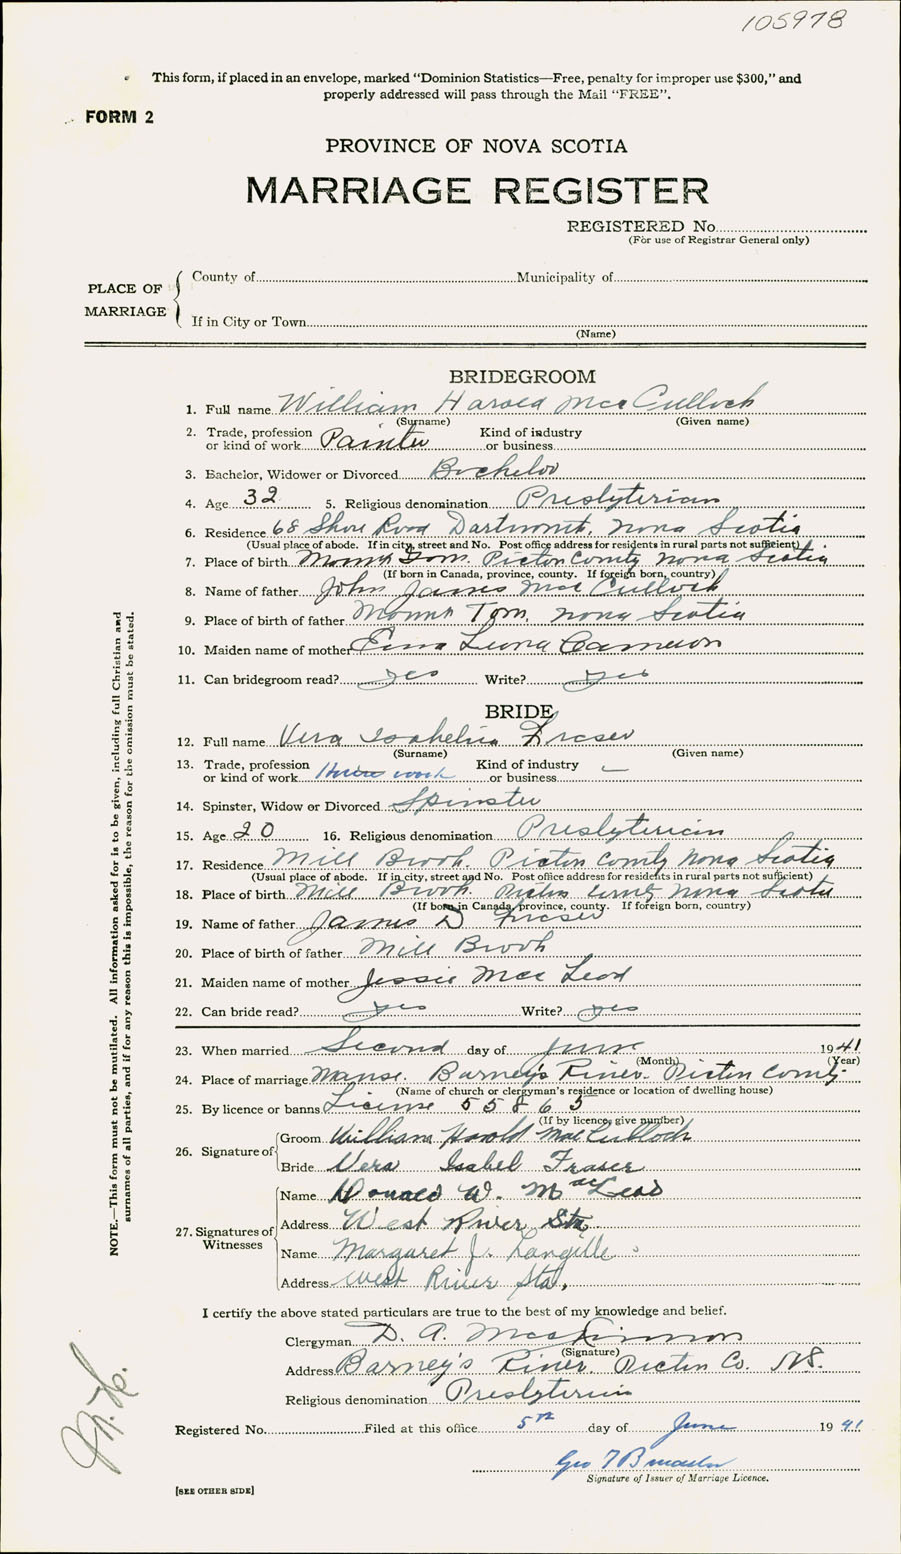 105978
This form, if placed in an envelope, marked "Dominion Statistics—Free, penalty for improper use $300," and
properly addressed will pass through the Mail "FREE".
FORM 2
PROVINCE OF NOVA SCOTIA
MARRIAGE REGISTER
REGISTERED No.
(For use of Registrar General only)
PLACE OF MARRIAGE
County of Municipality of
If in City or Town
(Name)
BRIDEGROOM
1. Full name William Harold MacCulloch
(Surname) (Given name)
2. Trade, profession or kind of work Painter Kind of industry or business
3. Bachelor, Widower or Divorced Bachelor
4. Age 32 5. Religious denomination Presbyterian
6. Residence 68 Shore Road Dartmouth, Nova Scotia
(Usual place of abode. If in city, street and No. Post office address for residents in rural parts not sufficient)
7. Place of birth Mount Tom. Pictou County Nova Scotia
(If born in Canada, province, county. If foreign born, country)
8. Name of father John James MacCulloch
9. Place of birth of father Mount Tom, Nova Scotia
10. Maiden name of mother Leona Cameron
11. Can bridegroom read? yes Write? yes
BRIDE
12. Full name Vera Isabelia Fraser
(Surname) (Given name)
13. Trade, profession or kind of work House work Kind of industry or business —
14. Spinster, Widow or Divorced Spinster
15. Age 20 16. Religious denomination Presbyterian
17. Residence Mill Brook. Pictou County Nova Scotia
(Usual place of abode. If in city, street and No. Post office address for residents in rural parts not sufficient)
18. Place of birth Mill Brook. Pictou County Nova Scotia
(If born in Canada, province, county. If foreign born, country)
19. Name of father James D Fraser
20. Place of birth of father Mill Brook
21. Maiden name of mother Jessie MacLeod
22. Can bride read? yes Write? yes
23. When married Second day of June 1941
(Month) (Year)
24. Place of marriage Manse. Barney's River. Pictou County
(Name of church or clergyman's residence or location of dwelling house)
25. By licence or banns License 55865
(If by licence, give number)
26. Signature of
Groom William Harold MacCulloch
Bride Vera Isabel Fraser
27. Signatures of Witnesses
Name Donald W. MacLeod
Address West River Sta.
Name Margaret J. Langille
Address West River Sta.
I certify the above stated particulars are true to the best of my knowledge and belief.
Clergyman D. A. MacKinnon
(Signature)
Address Barney's River. Pictou Co. N.S.
Religious denomination Presbyterian
Registered No. Filed at this office 5th day of June 1941
Geo T
Signature of Issuer of Marriage Licence.
[SEE OTHER SIDE]
NOTE.—This form must not be mutilated. All information asked for is to be given, including full Christian and
surnames of all parties, and if for any reason this is impossible, the reason for the omission must be stated.